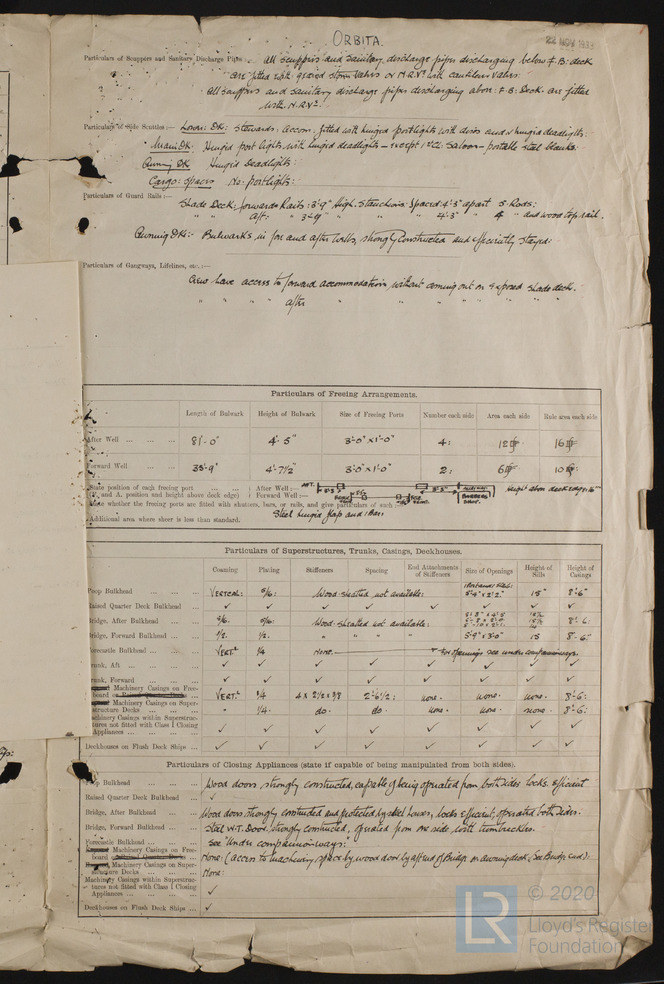 ORBITA.
22 NOV 1933
Particulars of Scuppers and Sanitary Discharge Pipes :— All scuppers and sanitary discharge pipes discharging below F.B. deck
are fitted with geared storm valves or N.R.Vs with cautious valves.
All scuppers and sanitary discharge pipes discharging above F.B. Deck are fitted
with N.R.Vs.
Particulars of Side Scuttles :— Lower: DK: Stewards: Accom: fitted with hinged portlights with
hinged deadlights:
Main DK: Hinged port lights with hinged deadlights — except 1st Cl. Saloon — portable steel blanks.
Awning DK Hinged Deadlights:
Cargo: Spaces No. portlights:
Particulars of Guard Rails :— Shade Deck: forward: Rails: 3'-9" High. Stanchions Spaced: 4'-3" apart 5 Rods:
" " aft: " 3'-9" " " 4'-3" " 4 " and wood top rail.
Awning DK:- Bulwarks in fore and after wells, strongly constructed and efficiently stayed:
Particulars of Gangways, Lifelines, etc. :—
Crew have access to forward accommodation without coming out on exposed shade deck.
" " " " after " " " " " " "
Particulars of Freeing Arrangements.
Length of Bulwark Height of Bulwark Size of Freeing Ports Number each side Area each side Rule area each side
After Well ... ... ... 81'-0" 4'-5" 3'-0" x 1'-0" 4: 12 16
Forward Well ... ... 33'-9" 4'-7 1/2" 3'-0" x 1'-0" 2: 6 10
State position of each freeing port ... ... After Well :— Height above deck edge: 16"
(F. and A. position and height above deck edge) Forward Well :—
State whether the freeing ports are fitted with shutters, bars, or rails, and give particulars of such :—
Steel hinged flap and: Bars
Additional area where sheer is less than standard.
Particulars of Superstructures, Trunks, Casings, Deckhouses.
Coaming Plating Stiffeners Spacing End Attachments of Stiffeners Size of Openings Height of Sills Height of Casings
Poop Bulkhead ... ... ... VERTICAL: 5/16: Wood sheated not available: 15" 8'-6"
Raised Quarter Deck Bulkhead ... ✓ ✓ ✓ ✓ ✓ ✓ ✓
Bridge, After Bulkhead ... ... Wood sheated not available: 8'-6:
Bridge, Forward Bulkhead ... ... 1/2. 1/2. " " " " 5'-9" x 3'-0" 15 8'-6"
Forecastle Bulkhead ... ... VERTL 1/4 None. For openings see under companionways.
Trunk, Aft ... ✓ ✓ ✓ ✓ ✓ ✓ ✓ ✓
Trunk, Forward ... ✓ ✓ ✓ ✓ ✓ ✓ ✓ ✓
Machinery Casings on Freeboard ... VERTL 1/4 4 x 2 1/2 x 3/8 2'-6 1/2: none. none. none. 8'-6:
Machinery Casings on Superstructure Decks ... " 1/4. do. do. none. none. none. 8'-6:
Machinery Casings within Superstructures not fitted with Class I Closing Appliances ... ✓ ✓ ✓ ✓ ✓ ✓ ✓ ✓
Deckhouses on Flush Deck Ships ... ✓ ✓ ✓ ✓ ✓ ✓ ✓ ✓
Particulars of Closing Appliances (state if capable of being manipulated from both sides).
Poop Bulkhead ... Wood doors strongly constructed, capable of being operated from both sides locks. efficient
Raised Quarter Deck Bulkhead ... ✓
Bridge, After Bulkhead ... Wood doors strongly constructed and protected by steel houses, locks efficient, operated both sides.
Bridge, Forward Bulkhead ... Steel W.T. Door strongly constructed, operated from one side with turnbuckles.
Forecastle Bulkhead ... See "Under companionways":
Machinery Casings on Freeboard ... None: (access to machinery space by wood door by aft end of Bridge on awning deck (See Bridge end).
Machinery Casings on Superstructure Decks ... None:
Machinery Casings within Superstructures not fitted with Class I Closing Appliances ... ✓
Deckhouses on Flush Deck Ships ... ✓
LR
© 2020
Lloyd's Register
Foundation